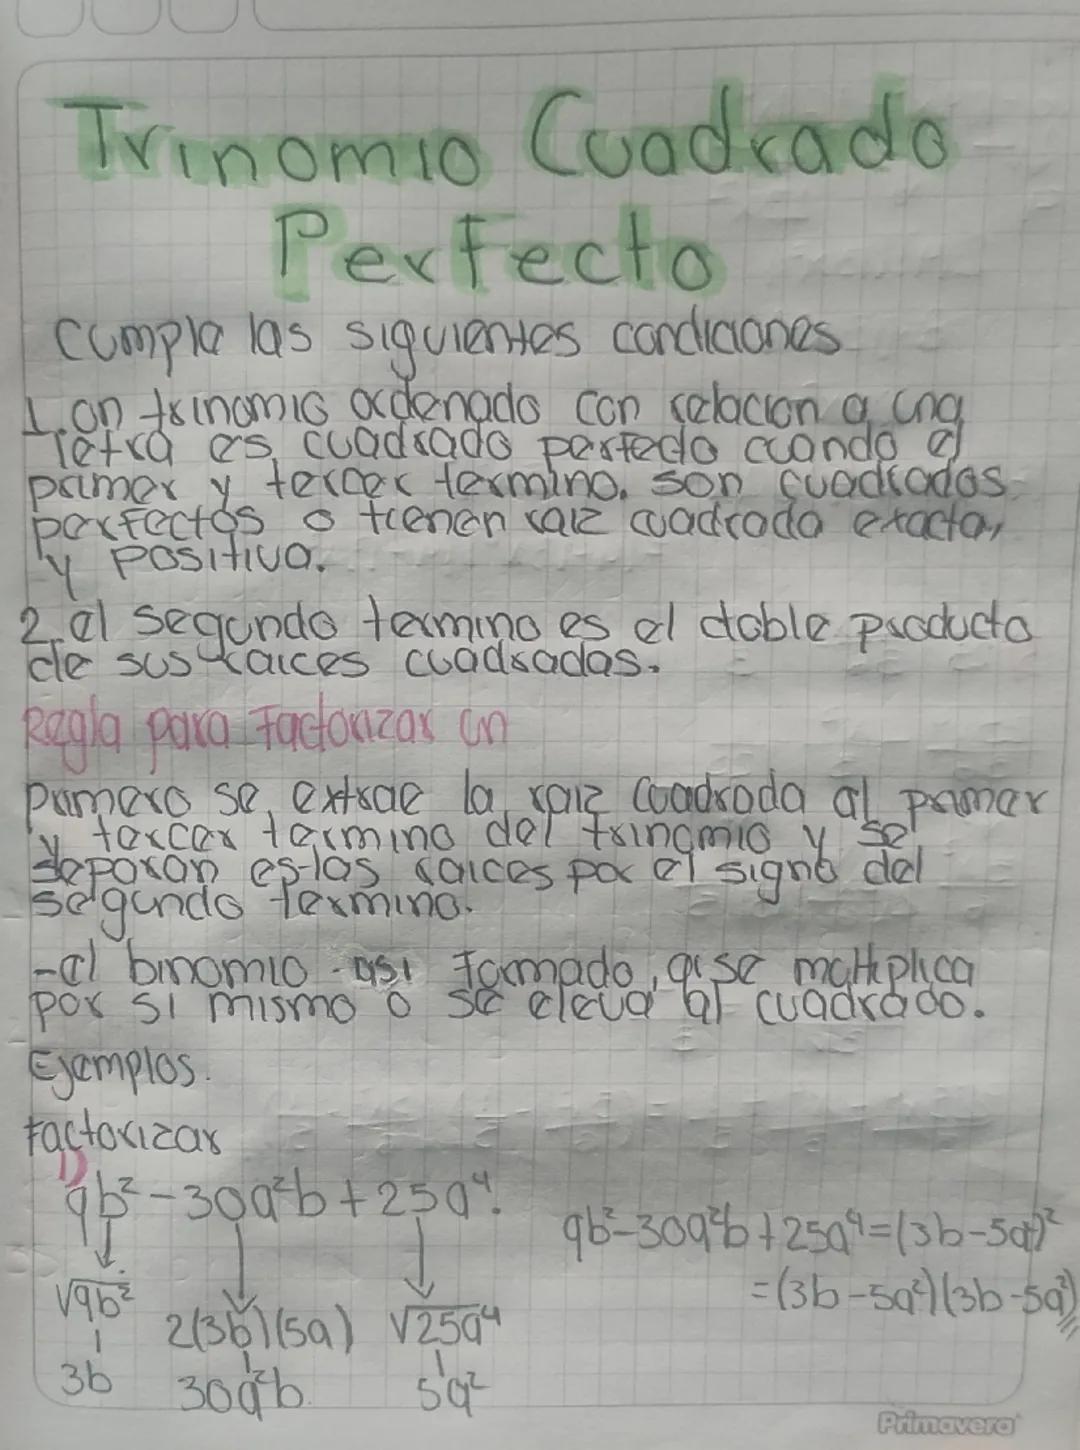 Trinomio Cuadrado
Perfecto
cumpla las siguientes condiciones
1. un trinomio ordenado con relacion a una
letra es cuadrado perfecto cuando el
primer y tercer termino. son cuadrados
perfectos o tienen raiz cuadrada exacta,
y positiva.
2. el segundo termino es el doble producto
de sus raices cuadradas.
Regla para Factorizar un
primero se extrae la raiz cuadrada al primer
y tercer termino del trinomio y se
separan es-las raices por el signo del
segundo termino.
-el binomio asi formado, q se multiplica
por si mismo o se eleva al cuadrado.
Ejemplos.
Factorizar
1)
9b² - 30a²b + 25a⁴.
9b² - 30a²b + 25a⁴ = (3b - 5a²)²
= (3b - 5a²)(3b - 5a²)
√9b² 2(3b)(5a) √25a⁴
3b 30a²b. 5a²
Primavera